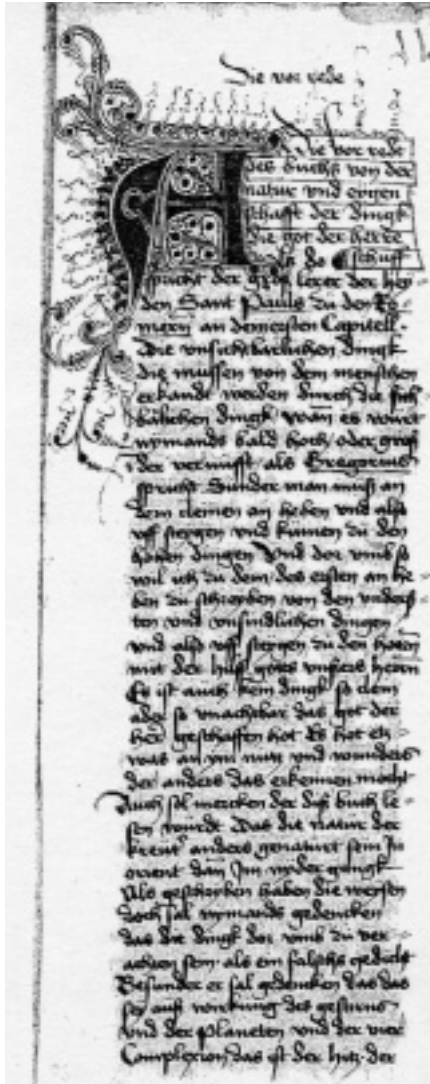 Die vor rede
Die vor rede
des buchs von der
natur vnd eygen
schafft der dingk
die got der herre
schuff
spricht der groß lerer der hey-
den Sant Pauls zu den Ro-
mern an dem ersten Capitell.
Die vnsichtbarlichen dingk
die mussen von dem menschen
erkandt werden durch die sich-
barlichen dingk wan es wirt
nymands bald hoch oder groß
der vernufft als Gregorius
spricht Sunder man muß an
dem cleinen an heben vnd also
vff steygen vnd kumen zu den
hohen dingen Vnd dor vmb so
wil ich zu dem des ersten an he-
ben zu schreyben von den vnders-
ten vnd vnsindlichen dingen
vnd also vff steygen zu den hoen
mit der hilf gots vnsers herrn
Es ist auch kein dingk so clein
ader so vnachtbar das got der
her geschaffen hot Es hot etz-
was an ym nutz vnd wunders
der anders das erkennen mocht
Auch sol mercken der diß buch le-
sen wurdt Das die natur der
kreut anders genaturt sein Im
orient dan Im nyder gangk
Als geschryben haben die weysen
doch sal nymands gedencken
das die dingk dor vmb zu ver
achten sein als ein falschs gedicht
Besunder er sal gedencken das das
sey auß wirkung des gestirns
vnd der planeten vnd der vier
Complexion das ist der hitz der